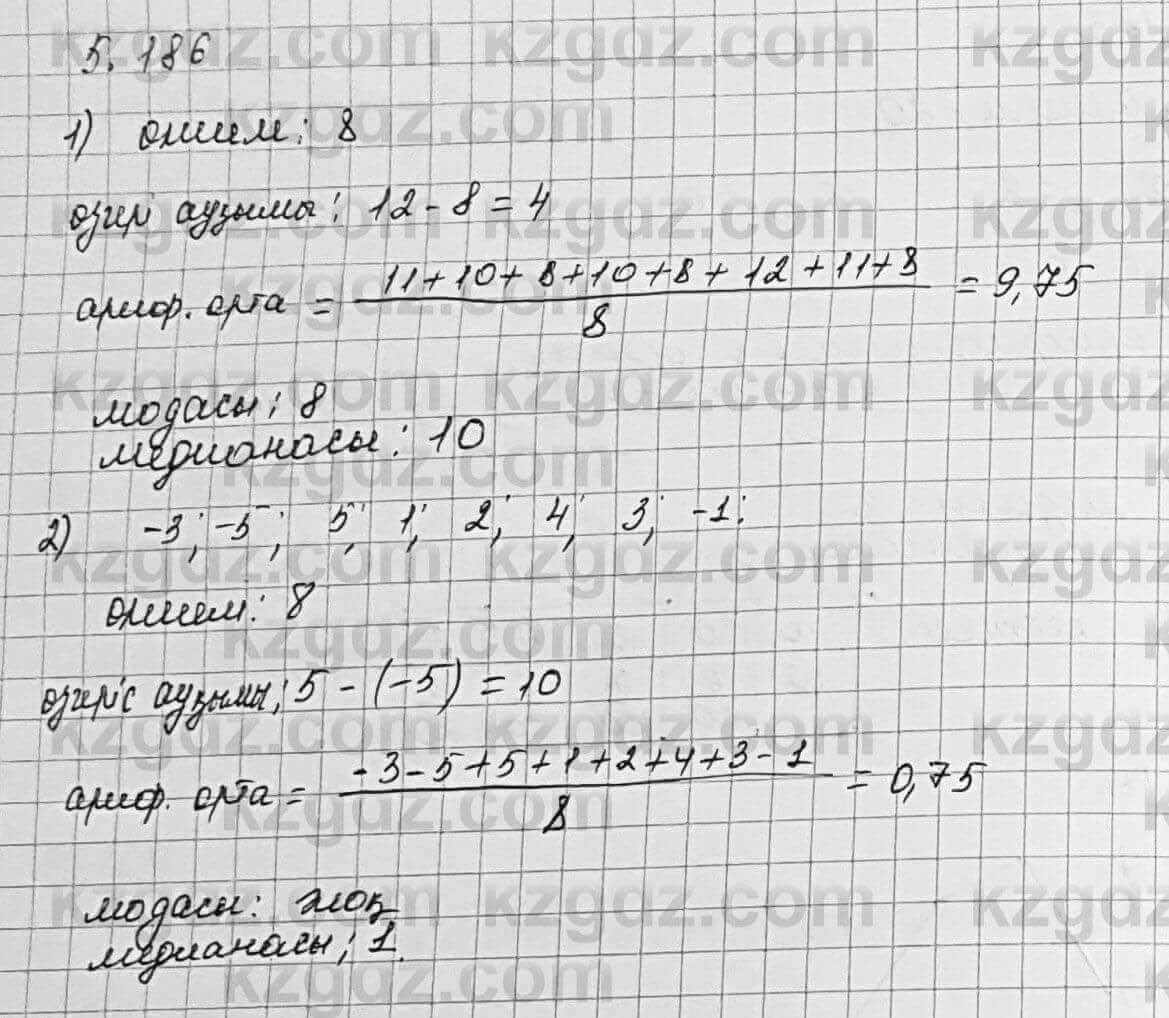 5.186
1) өлшем: 8
өзгер аузымы: 12 - 8 = 4
ариф. орта = 11 + 10 + 8 + 10 + 8 + 12 + 11 + 8 / 8 = 9,75
модасы: 8
медианасы: 10
2) -3; -5; 5; 1; 2; 4; 3; -1;
өлшем: 8
өзгеріс аузымы: 5 - (-5) = 10
ариф. орта = -3 - 5 + 5 + 1 + 2 + 4 + 3 - 1 / 8 = 0,75
модасы: жоқ
медианасы; 1.
kzgdz.com